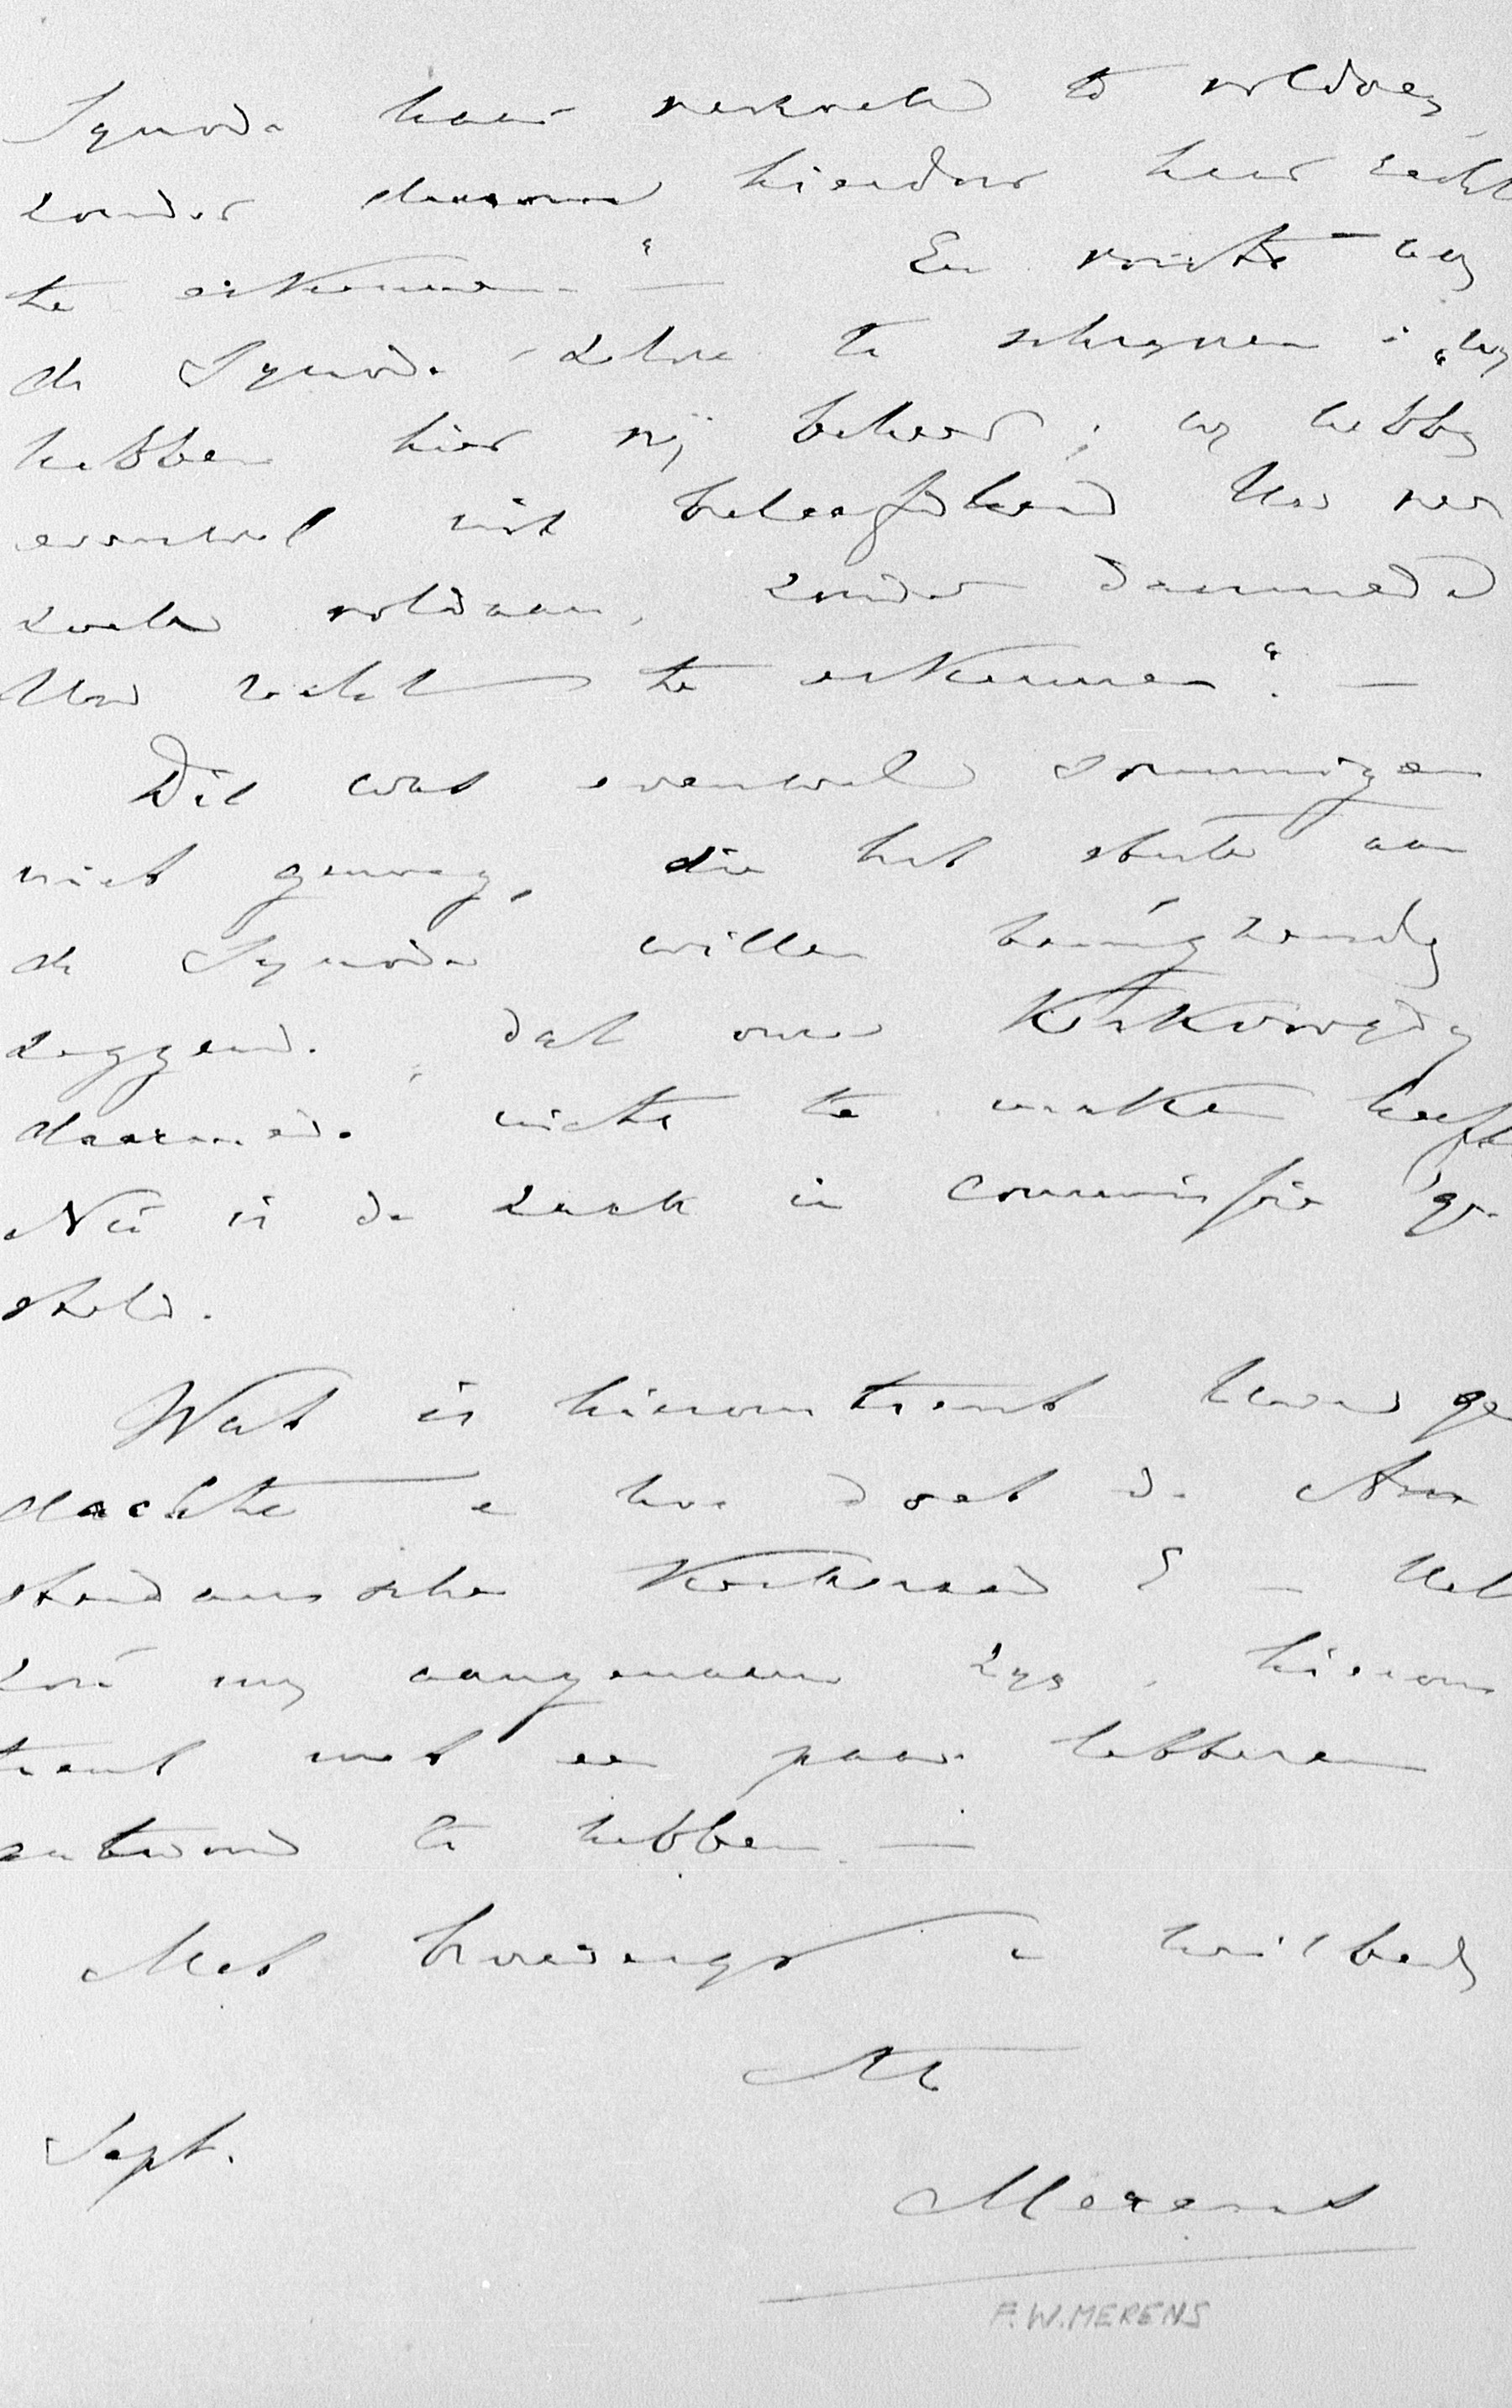 Synode haar verzoek te voldoen,
zonder daarom hierdoor haar recht
te erkennen." — En voorts aan
de Synode zelve te schryven: „wy
hebben hier vrij beheer; wy hebben
evenwel uit beleefdheid Uw ver
zoek voldaan, zonder daarmede
Uw recht te erkennen". —
Dit was evenwel sommigen
niet genoeg, die het stuk aan
de Synode willen terugzenden
zeggend. dat onze Kerkvoogdy
daarmede niets te maken heeft
Nu is de zaak in commissie ge-
steld.
Wat is hieromtrent Uwe ge
dachte en hoe doet de Am
sterdamsche Kerkeraad? — Het
zou my aangenaam zyn, hierom
trent met een paar letteren
antwoord te hebben. —
Met broedergr en heilbede
Sept.
Merens
F.W. MERENS